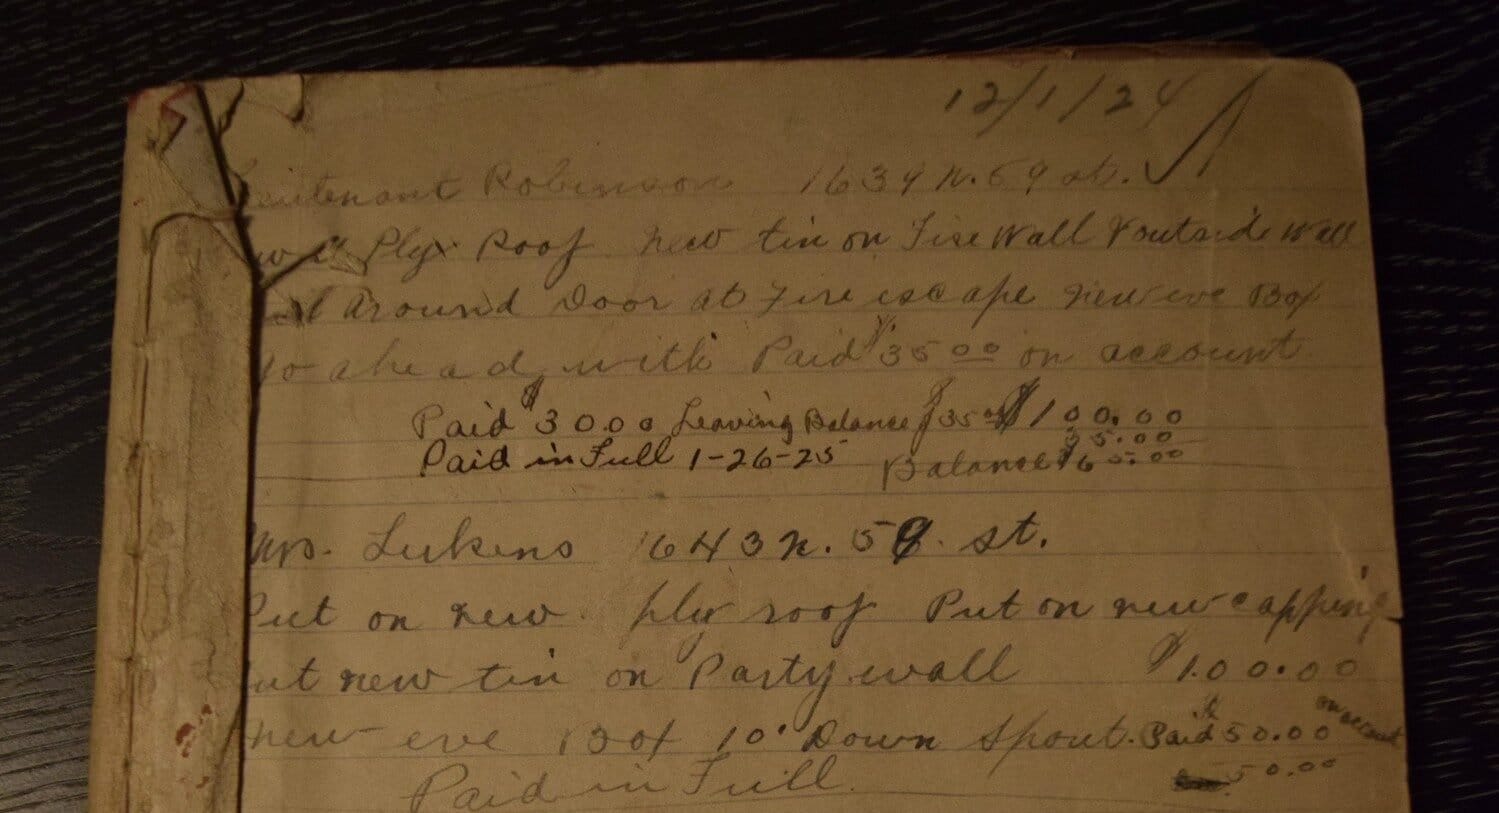 12/1/24
Lieutenant Robinson 1639 N. 59 st.
Ply Roof new tin on Fire Wall & outside Wall
around Door at Fire escape new eve Box
Go ahead with Paid $35.00 on account
Paid $30.00 Leaving Balance $35.00 $100.00
35.00
Paid in Full 1-26-25 Balance $65.00
Mrs. Lukens 1643 N. 59. st.
Put on new ply roof Put on new capping
Put new tin on Party wall $100.00
new eve Box 10' Down Spout. Paid $50.00 on account
Paid in Full 50.00